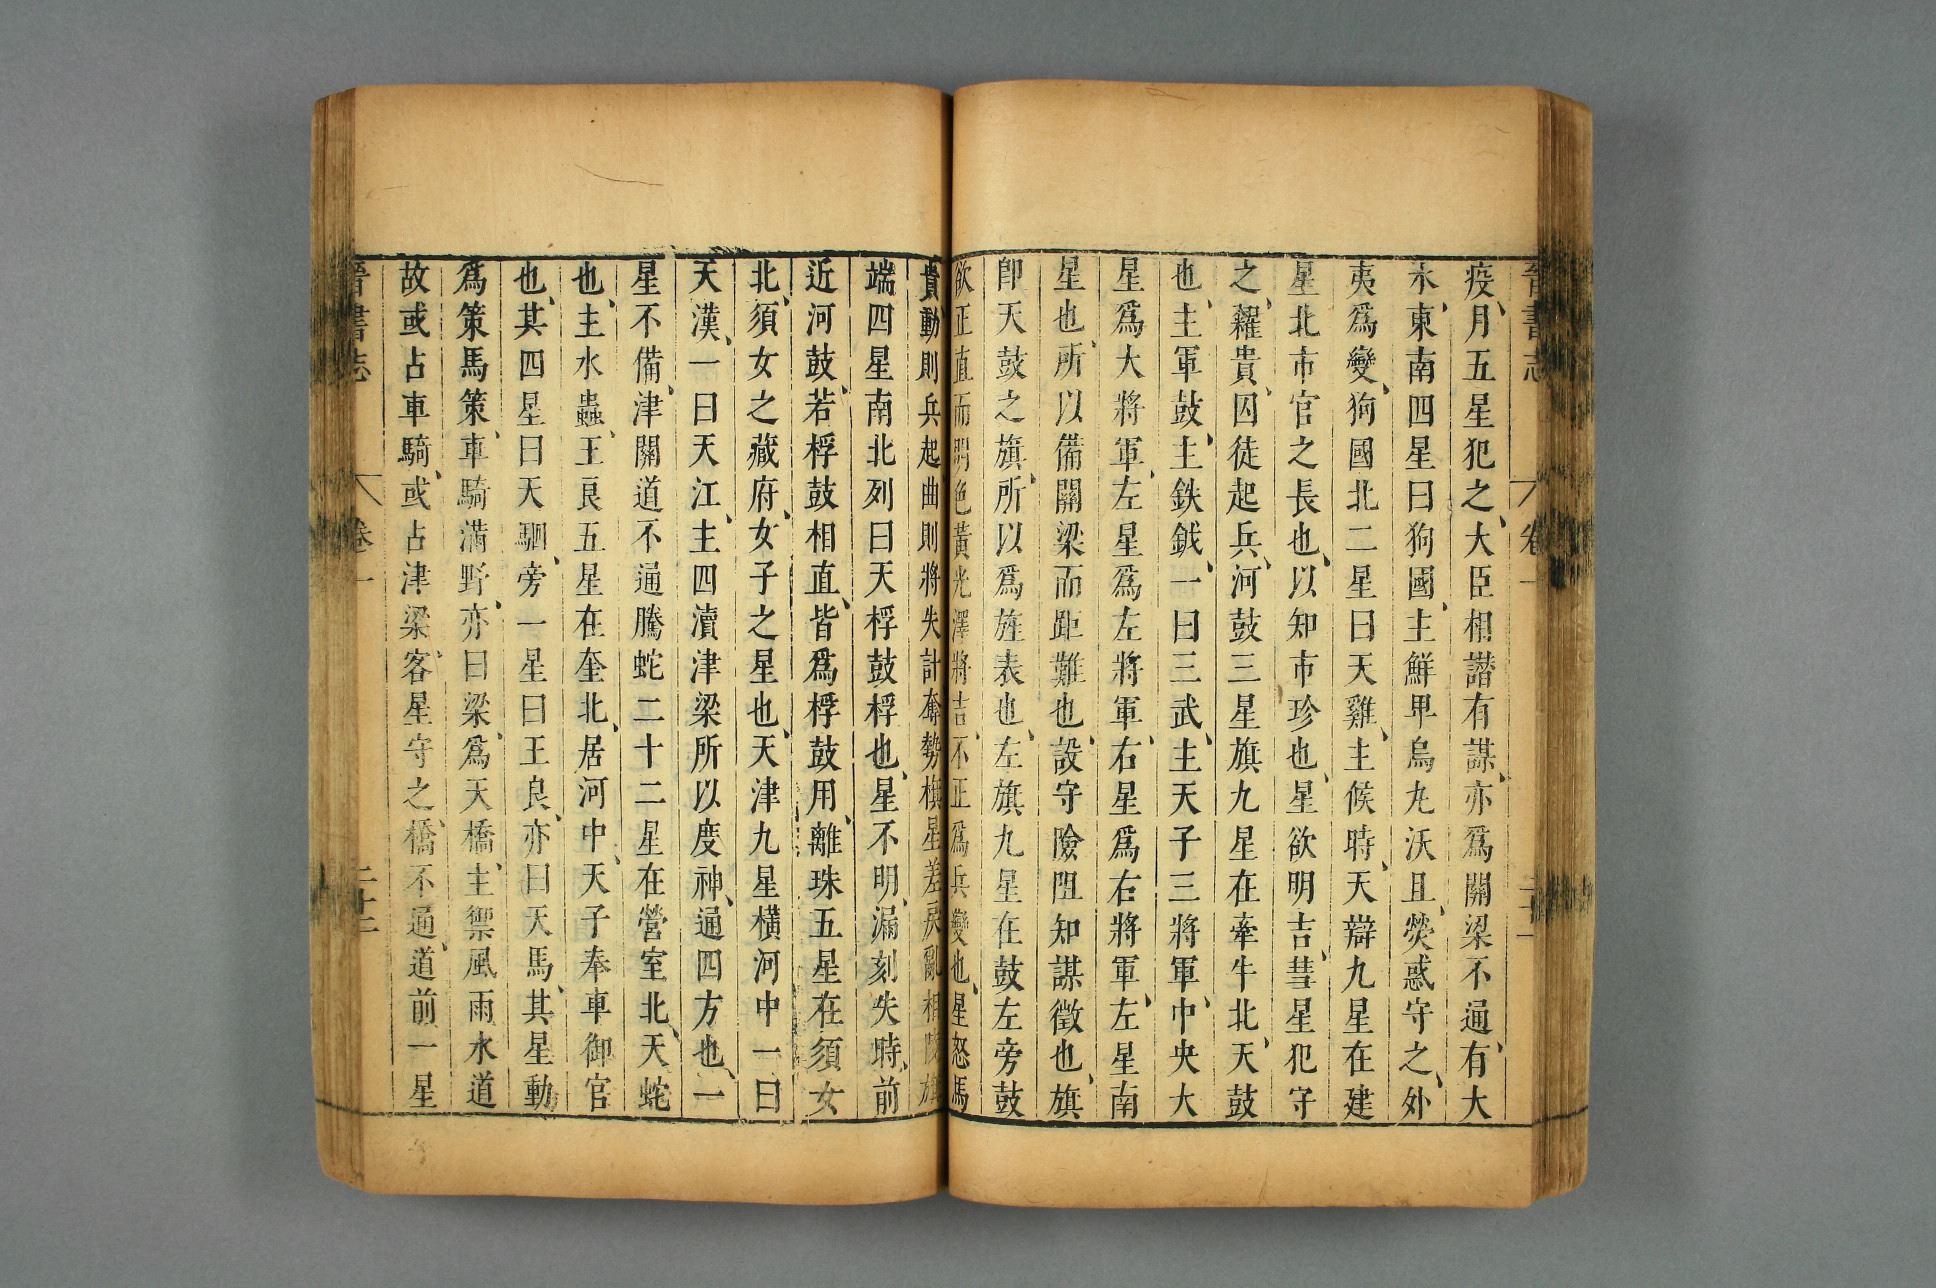 晉書志 卷一 二十一
疫、月五星犯之、大臣相譖有謀、亦爲關梁不通、有大
水、東南四星曰狗國、主鮮卑烏丸沃且、熒惑守之、外
夷爲變、狗國北二星曰天雞、主候時、天辯九星在建
星北市官之長也、以知市珍也、星欲明吉、彗星犯守
之、糴貴、囚徒起兵、河鼓三星旗九星在牽牛北、天鼓
也、主軍鼓、主鈇鉞、一曰三武、主天子三將軍、中央大
星爲大將軍、左星爲左將軍、右星爲右將軍、左星南
星也、所以備關梁而距難也、設守險阻知謀徵也、旗
卽天鼓之旗、所以爲旌表也、左旗九星在鼓左旁鼓
欲正直而明色黃光澤將吉、不正爲兵變也、星怒馬
貴、動則兵起、曲則將失計奪勢旗星差戾亂相陵旗
端四星南北列曰天桴鼓桴也、星不明、漏刻失時、前
近河鼓、若桴鼓相直、皆爲桴鼓用、離珠五星在須女
北、須女之藏府、女子之星也、天津九星橫河中一曰
天漢、一曰天江、主四瀆津梁所以度神、通四方也、一
星不備、津關道不通騰蛇二十二星在營室北、天蛇
也、主水蟲、王良五星在奎北、居河中、天子奉車御官
也、其四星曰天駟、旁一星曰王良、亦曰天馬、其星動
爲策馬策、車騎滿野、亦曰梁、爲天橋、主禦風雨水道
故或占車騎、或占津梁、客星守之、橋不通、道前一星
晉書志 卷一 二十二